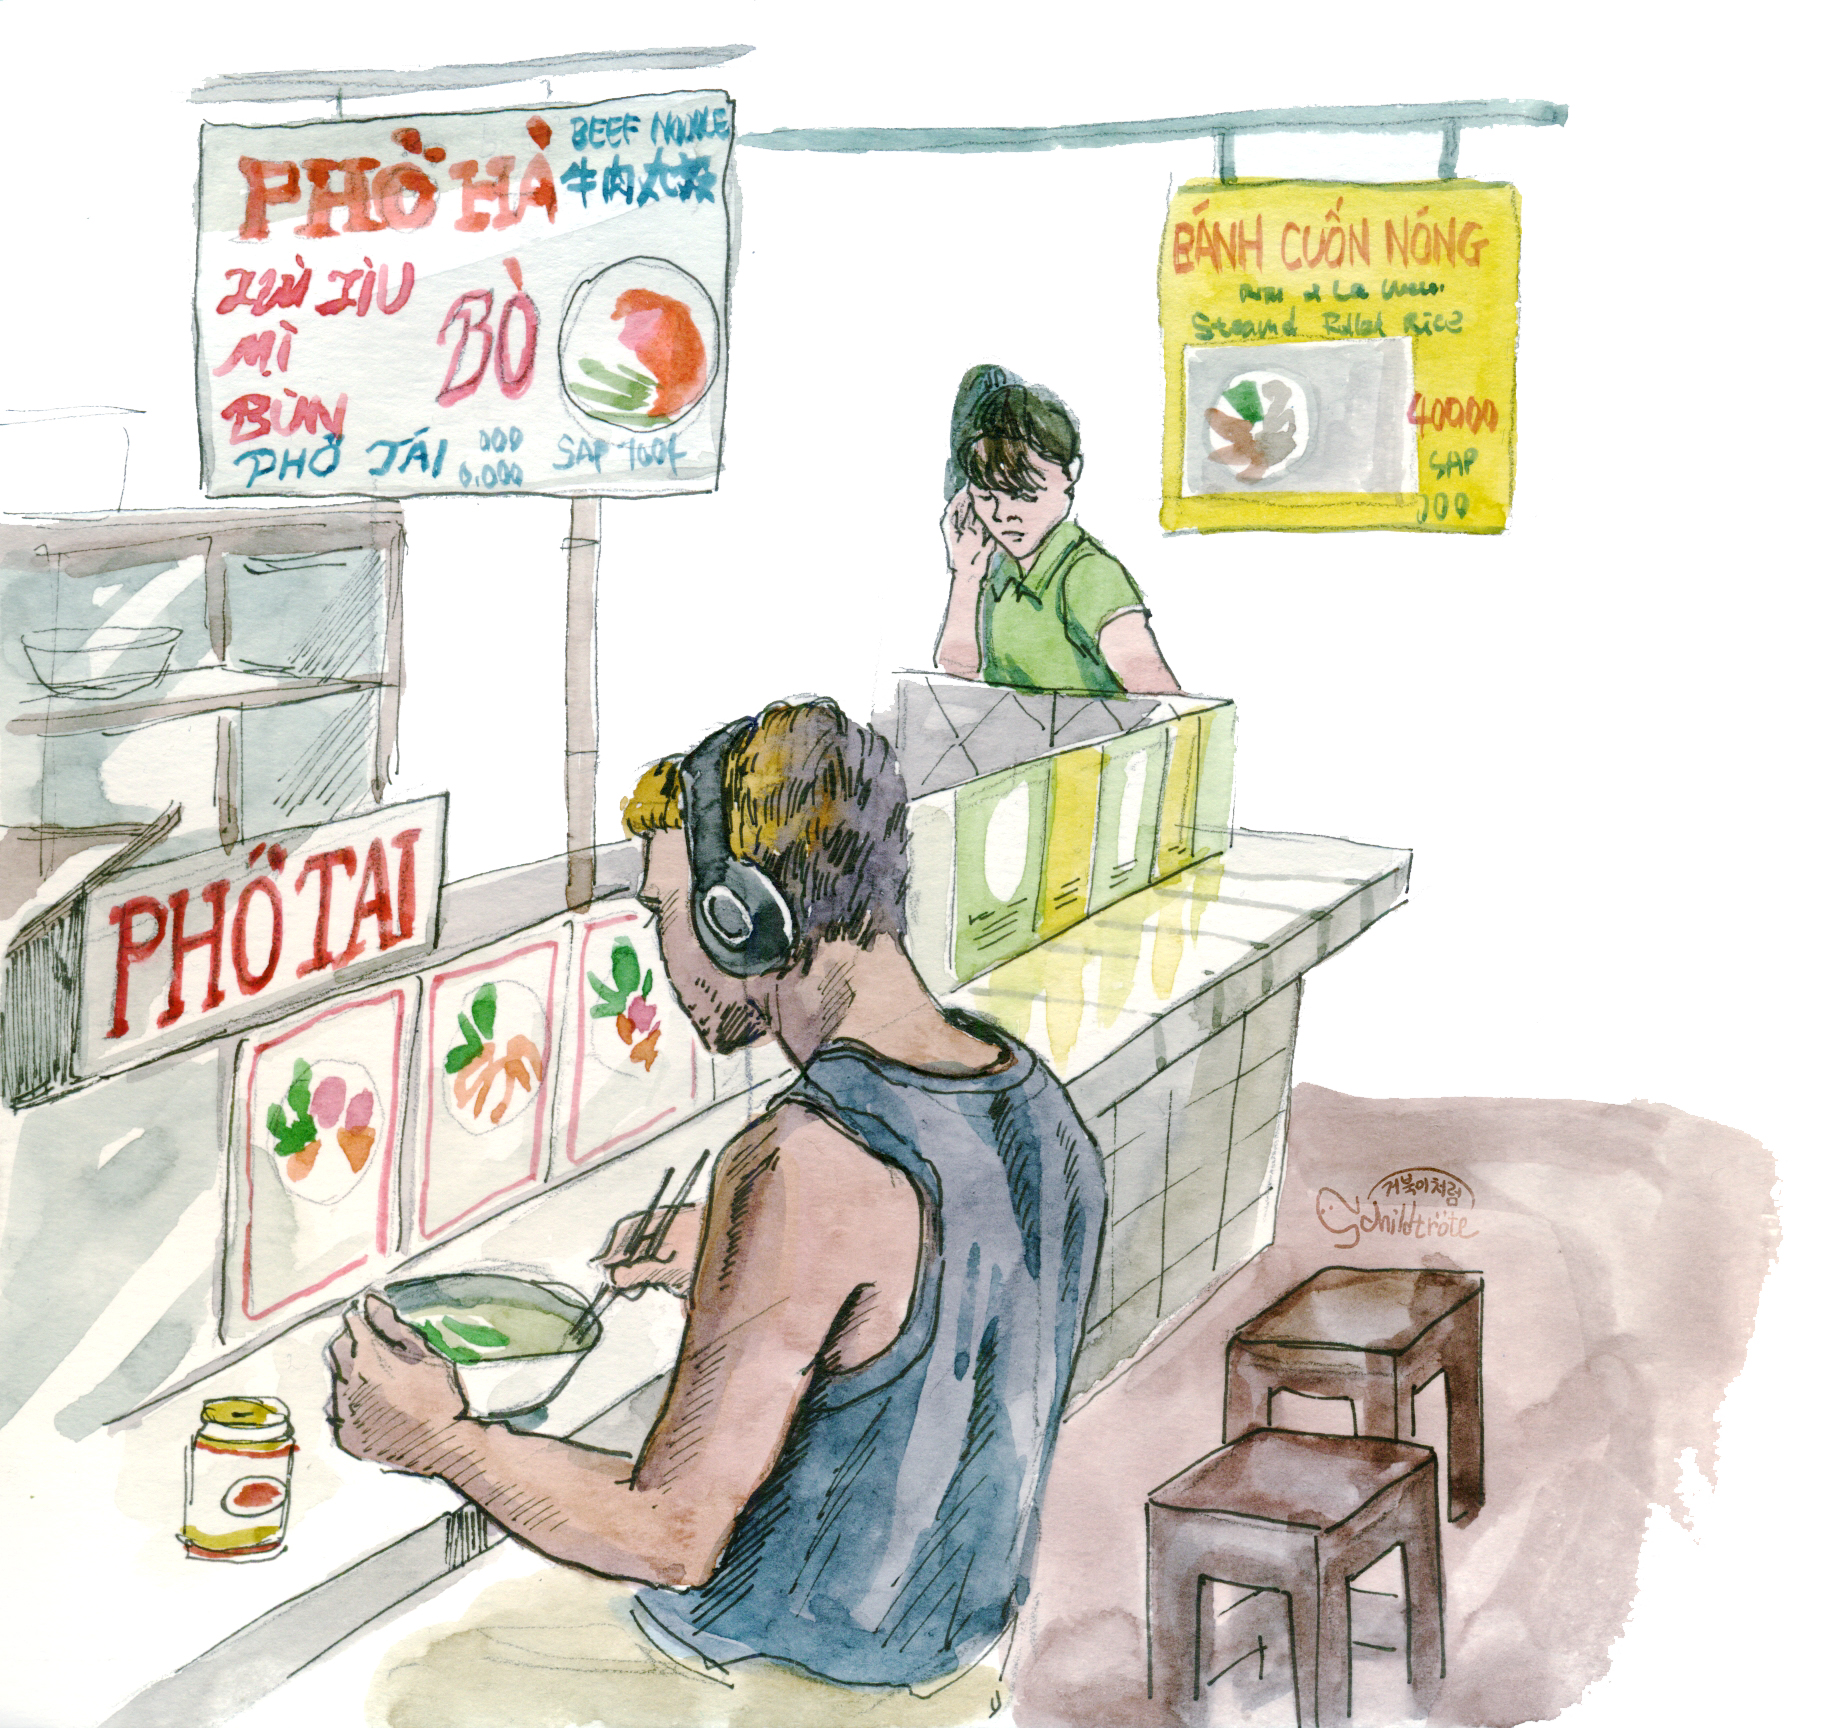 PHỞ HÀ
BEEF NOODLE
牛肉
MÌ
BÒ
BÚN
PHỞ TÁI
000
0.000
SAP
BÁNH CUỐN NÓNG
Steamd Rolled Rice
40000
SAP
000
PHỞ TAI
거북이처럼
Schildtröte